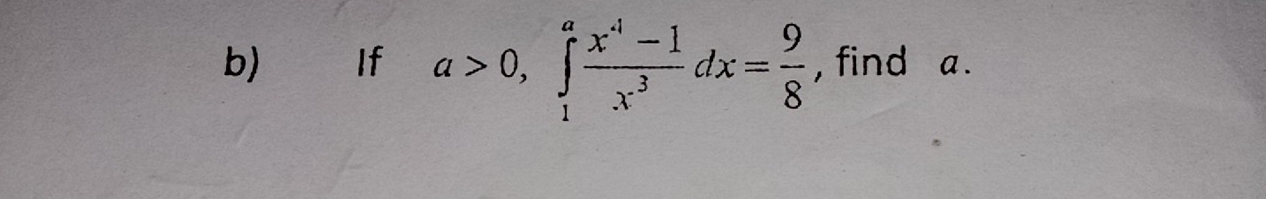 b) If a > 0, \int_{1}^{a} \frac{x^4 - 1}{x^3} dx = \frac{9}{8}, find a.